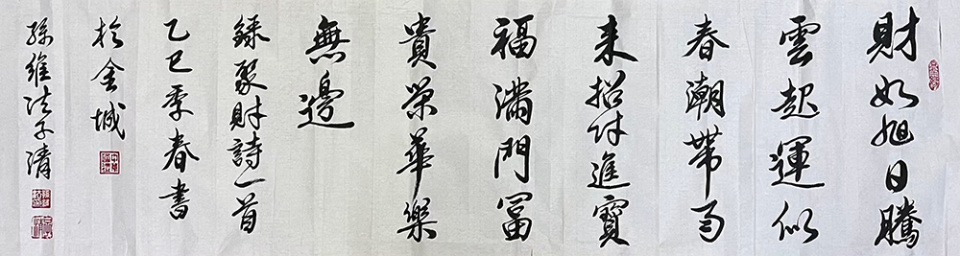 財如旭日騰
雲起運似
春潮帶雨
来招财進寶
福滿門冨
貴榮華樂
無邊
録聚財詩一首
乙巳季春書
於金城
孫維法子清